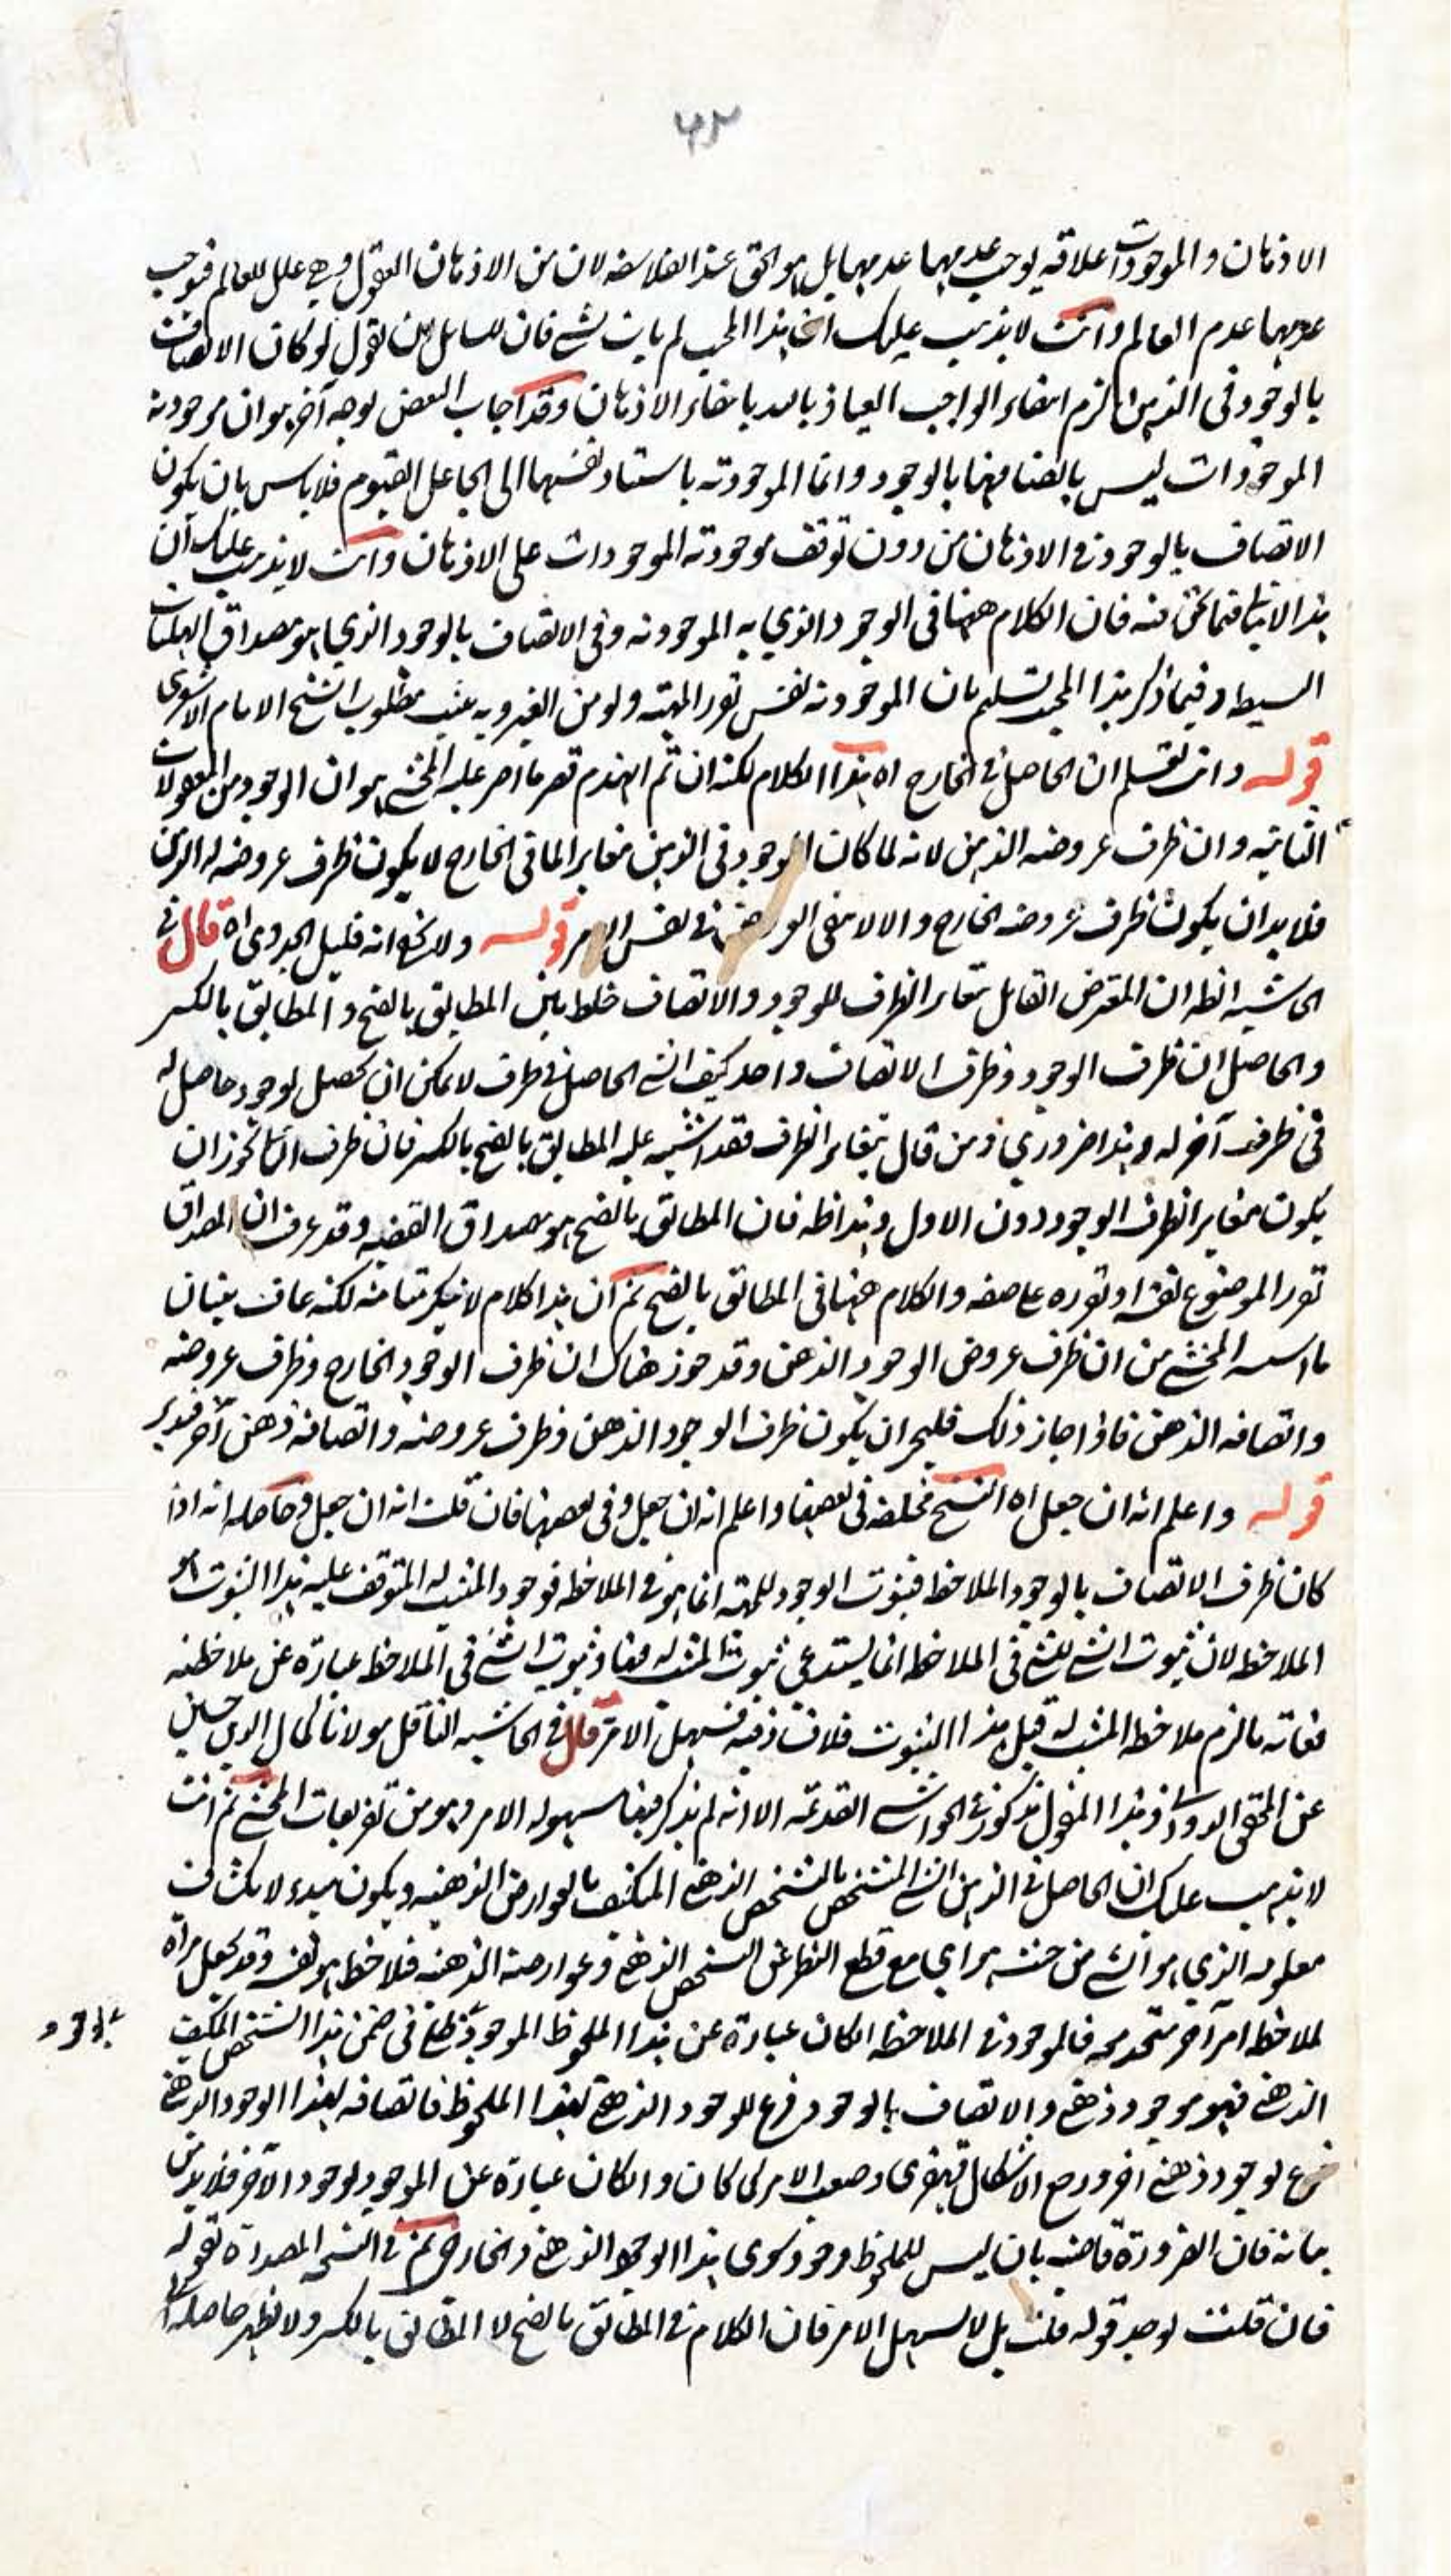 ٦٣
الاذهان والموجودات علاقة يوجب عدمها عدمها بل هو الحق عند الفلاسفة لان من الاذهان العقول وهي علل للعالم فيوجب
عدمها عدم العالم وانت لا يذهب عليك ان هذا المجيب لم يات بشئ فان للسائل ان يقول لو كان الاتصاف
بالوجود في الذهن لزم انتفاء الواجب العياذ بالله بانتفاء الاذهان وقد اجاب البعض بوجه آخر هو ان موجودية
الموجودات ليس باتصافها بالوجود وانما الموجودية باستناد نفسها الى الجاعل القيوم فلا باس بان يكون
الاتصاف بالوجود في الاذهان من دون توقف موجودية الموجودات على الاذهان وانت لا يذهب عليك ان
هذا لا فيما نحن فيه فان الكلام ههنا في الوجود الذي به الموجودية وفي الاتصاف بالوجود الذي هو مصداق الهليات
البسيطة وفيما ذكر هذا المجيب تسليم بان الموجودية نفس تقرر المهية ولو من الغير وبه يثبت مطلوب الشيخ الامام الاشعري
قوله وانت تعلم ان الحاصل في الخارج اه هذا الكلام لكنه ان تم انهدم قصر ما اصر عليه المحشي هو ان الوجود من المعقولات
الثانية وان ظرف عروضه الذهن لانه لما كان الوجود في الذهن مغايرا لما في الخارج لا يكون ظرف عروضه له الذهن
فلا بد ان يكون ظرف عروضه الخارج والا لانتفى العروض في نفس الامر قوله ولا يخفى انه قليل الجدوى اه قال في
الحاشية انظر ان المعترض القائل بتغاير الظرف للوجود والاتصاف خلط بين المطابق بالفتح والمطابق بالكسر
والحاصل ان ظرف الوجود وظرف الاتصاف واحد كيف الشئ الحاصل في ظرف لا يمكن ان يحصل لوجود حاصل له
في ظرف آخر له وهذا ضروري ومن قال بتغاير الظرف فقد اشتبه عليه المطابق بالفتح بالكسر فان ظرف الثاني يجوز ان
يكون مغايرا لظرف الوجود دون الاول وهذا ظه فان المطابق بالفتح هو مصداق القضية وقد عرفت ان المصداق
تقرر الموضوع نفسه او تقرره على صفة والكلام ههنا في المطابق بالفتح ثم ان هذا كلام لا ينكر متانته لكنه عاف بنيان
ما اسسه المحشي من ان ظرف عروض الوجود الذهن وقد جوز هناك ان ظرف الوجود الخارج وظرف عروضه
واتصافه الذهن فاذا جاز ذلك فليجز ان يكون ظرف الوجود الذهن وظرف عروضه واتصافه ذهن آخر فتدبر
قوله واعلم انه ان جعل اه النسخ مختلفة في بعضها واعلم انه ان جعل وفي بعضها فان قلت انه ان جعل وحاصله انه اذا
كان ظرف الاتصاف بالوجود الملاحظة فثبوت الوجود للمهية انما هو في الملاحظة فوجود المثبت له المتوقف عليه هذا الثبوت هو
الملاحظة لان ثبوت الشئ للشئ في الملاحظة انما يستدعي ثبوت المثبت له فيها وثبوت الشئ في الملاحظة عبارة عن ملاحظته
فغاية ما لزم ملاحظة المثبت له قبل هذا الثبوت فلا فيه فسهل الامر قال في الحاشية الناقل مولانا كمال الدين حسين
عن المحقق الدواني وهذا المنقول مذكور في الحواشي القديمة الا انه لم يذكر فيها سهولة الامر وهو من تفريعات المحشي ثم انت
لا يذهب عليك ان الحاصل في الذهن الشئ المتشخص بالتشخص الذهني المكتنف بالعوارض الذهنية ويكون مبدء لانكشاف
معلومه الذي هو الشئ من حيث هو اي مع قطع النظر عن التشخص الذهني وعوارضه الذهنية فملاحظ هو نفسه وقد يجعل مراة
لملاحظة امر آخر متحد معه فالموجود في الملاحظة ان كان عبارة عن هذا الملحوظ الموجود في ضمن هذا الشخص المكتنف
الذهني فهو موجود ذهني والاتصاف بالوجود فرع للوجود الذهني لهذا الملحوظ فاتصافه بهذا الوجود الذهني
فرع لوجود ذهني آخر ورجع الاشكال قهقرى وصعب الامر كما كان وان كان عبارة عن الموجود لوجود الآخر فلا بد من
بيانه فان الضرورة قاضية بان ليس للملحوظ وجود سوى هذا الوجود الذهني والخارجي ثم في النسخ المصدرة بقوله
فان قلت يوجد قوله قلت بل لا يسهل الامر فان الكلام في المطابق بالفتح لا المطابق بالكسر ولا يظهر حاصله